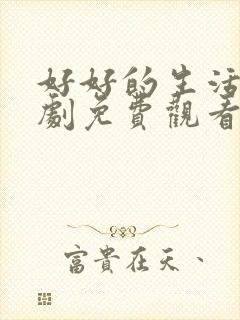 好好的生活
劇免費觀看
富貴在天、